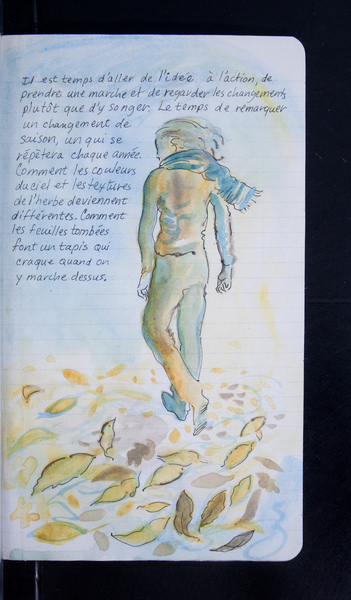 Il est temps d'aller de l'idée à l'action, de
prendre une marche et de regarder les changements
plutôt que d'y songer. Le temps de remarquer
un changement de
saison, un qui se
répètera chaque année.
Comment les couleurs
du ciel et les textures
de l'herbe deviennent
différentes. Comment
les feuilles tombées
font un tapis qui
craque quand on
y marche dessus.